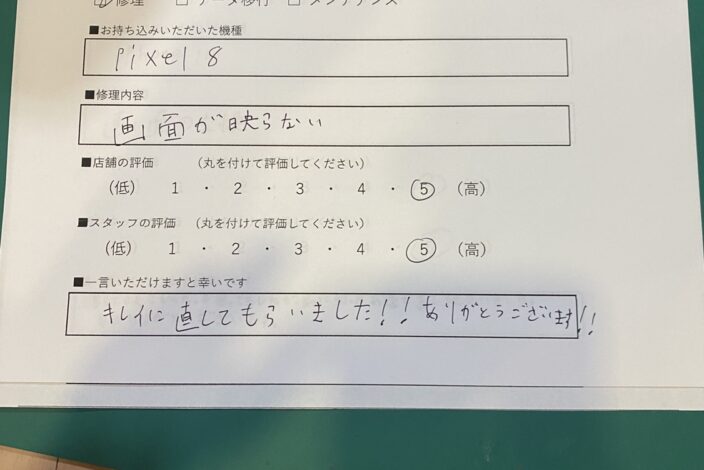 ☑修理 □データ移行 □メンテナンス
■お持ち込みいただいた機種
Pixel 8
■修理内容
画面が映らない
■店舗の評価 （丸を付けて評価してください）
（低） 1 ・ 2 ・ 3 ・ 4 ・ 5 （高）
■スタッフの評価 （丸を付けて評価してください）
（低） 1 ・ 2 ・ 3 ・ 4 ・ 5 （高）
■一言いただけますと幸いです
キレイに直してもらいました!!ありがとうございます!!